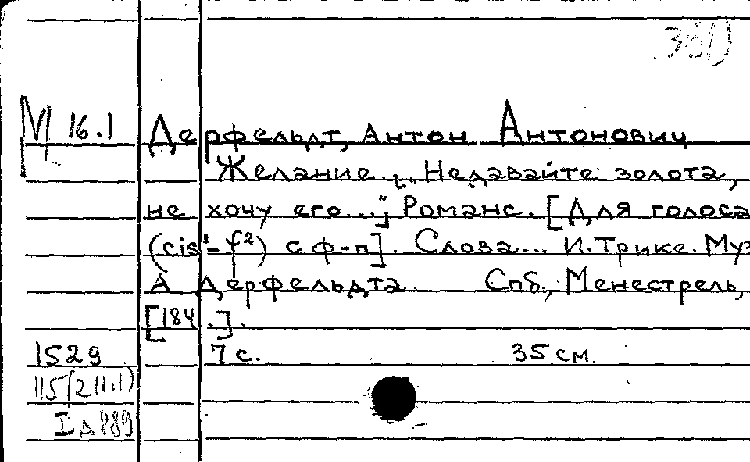 38()
М 16.1 Дерфельдт, Антон Антонович
Желание. „Недавайте золота,
не хочу его..."; Романс. [Для голоса
(cis¹-f²) с ф-п]. Слова... И. Трике. Муз
А Дерфельдта. Спб, Менестрель,
[184.].
1529 7 с. 35 см.
115(211.1)
I д 889